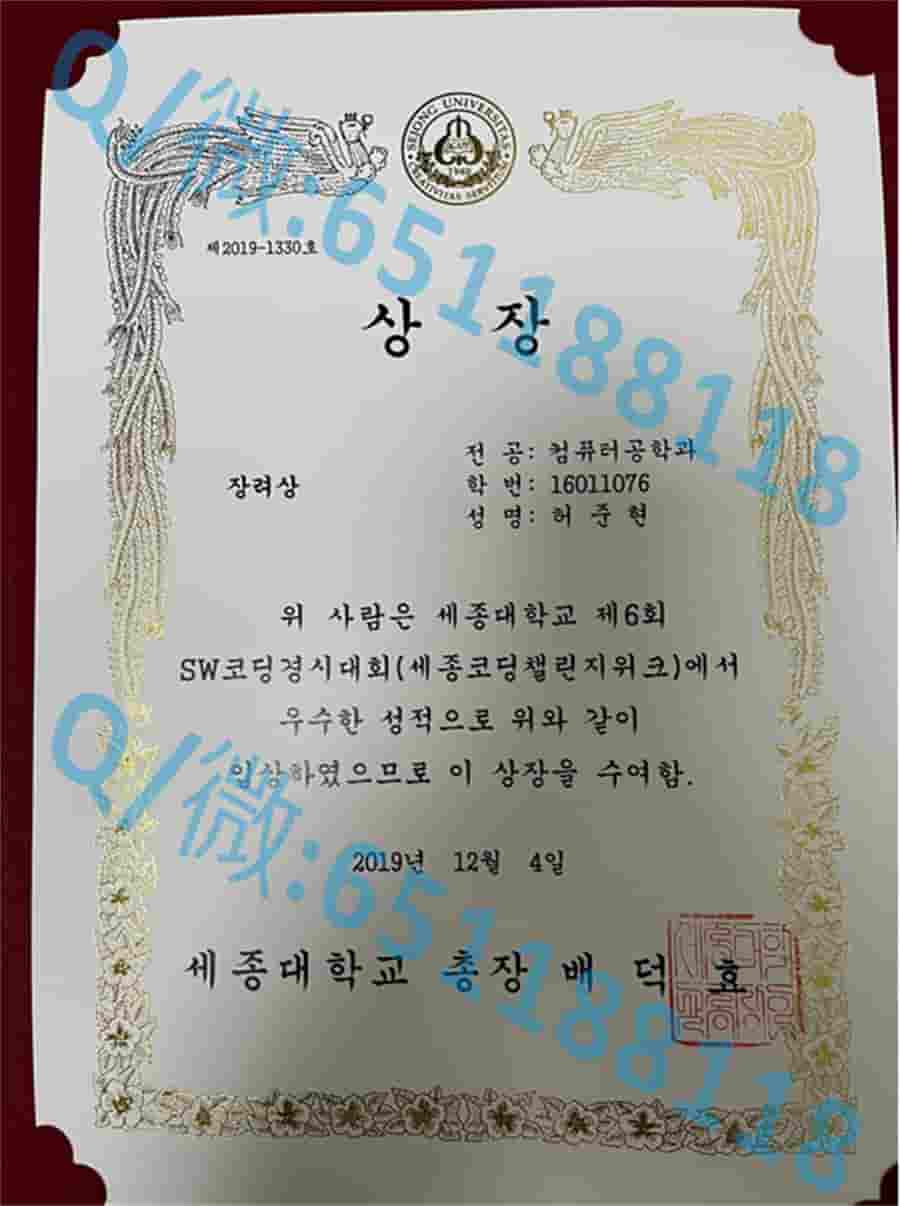 SEJONG UNIVERSITAS
1940
제2019-1330호
상 장
장려상
전 공: 컴퓨터공학과
학 번: 16011076
성 명: 허 준 현
위 사람은 세종대학교 제6회
SW코딩경시대회(세종코딩챌린지위크)에서
우수한 성적으로 위와 같이
입상하였으므로 이 상장을 수여함.
2019년 12월 4일
세종대학교 총장 배 덕 효
Q/微:651188118
Q/微:651188118